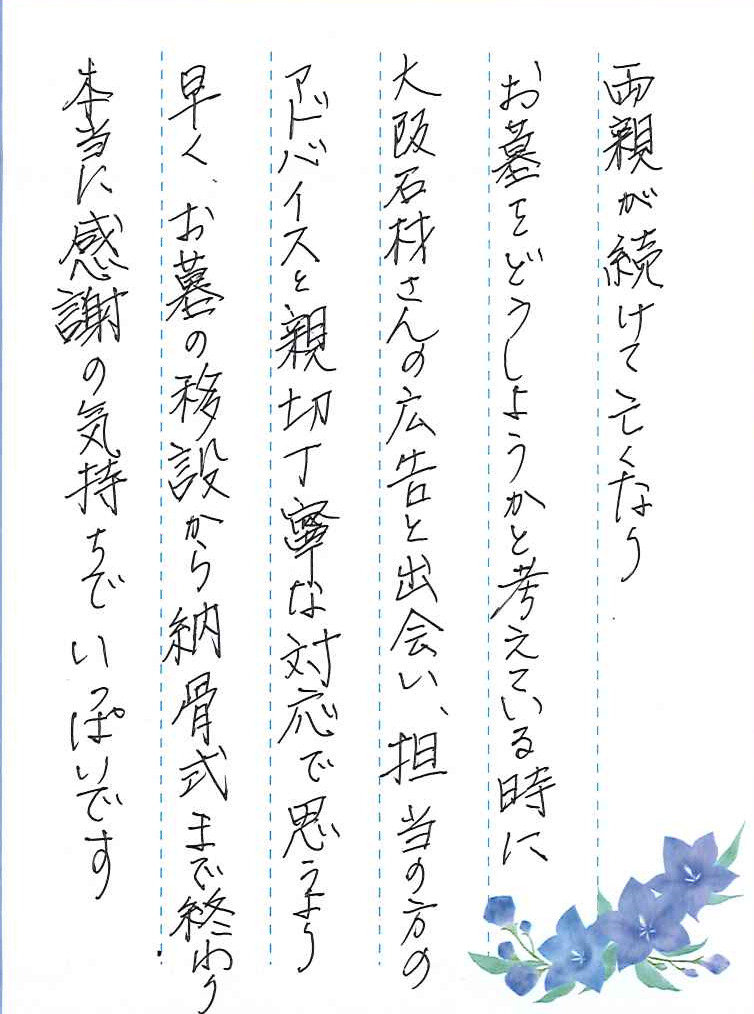 両親が続けて亡くなり
お墓をどうしようかと考えている時に
大阪石材さんの広告と出会い、担当の方の
アドバイスと親切丁寧な対応で思うより
早く、お墓の移設から納骨式まで終わり
本当に感謝の気持ちでいっぱいです